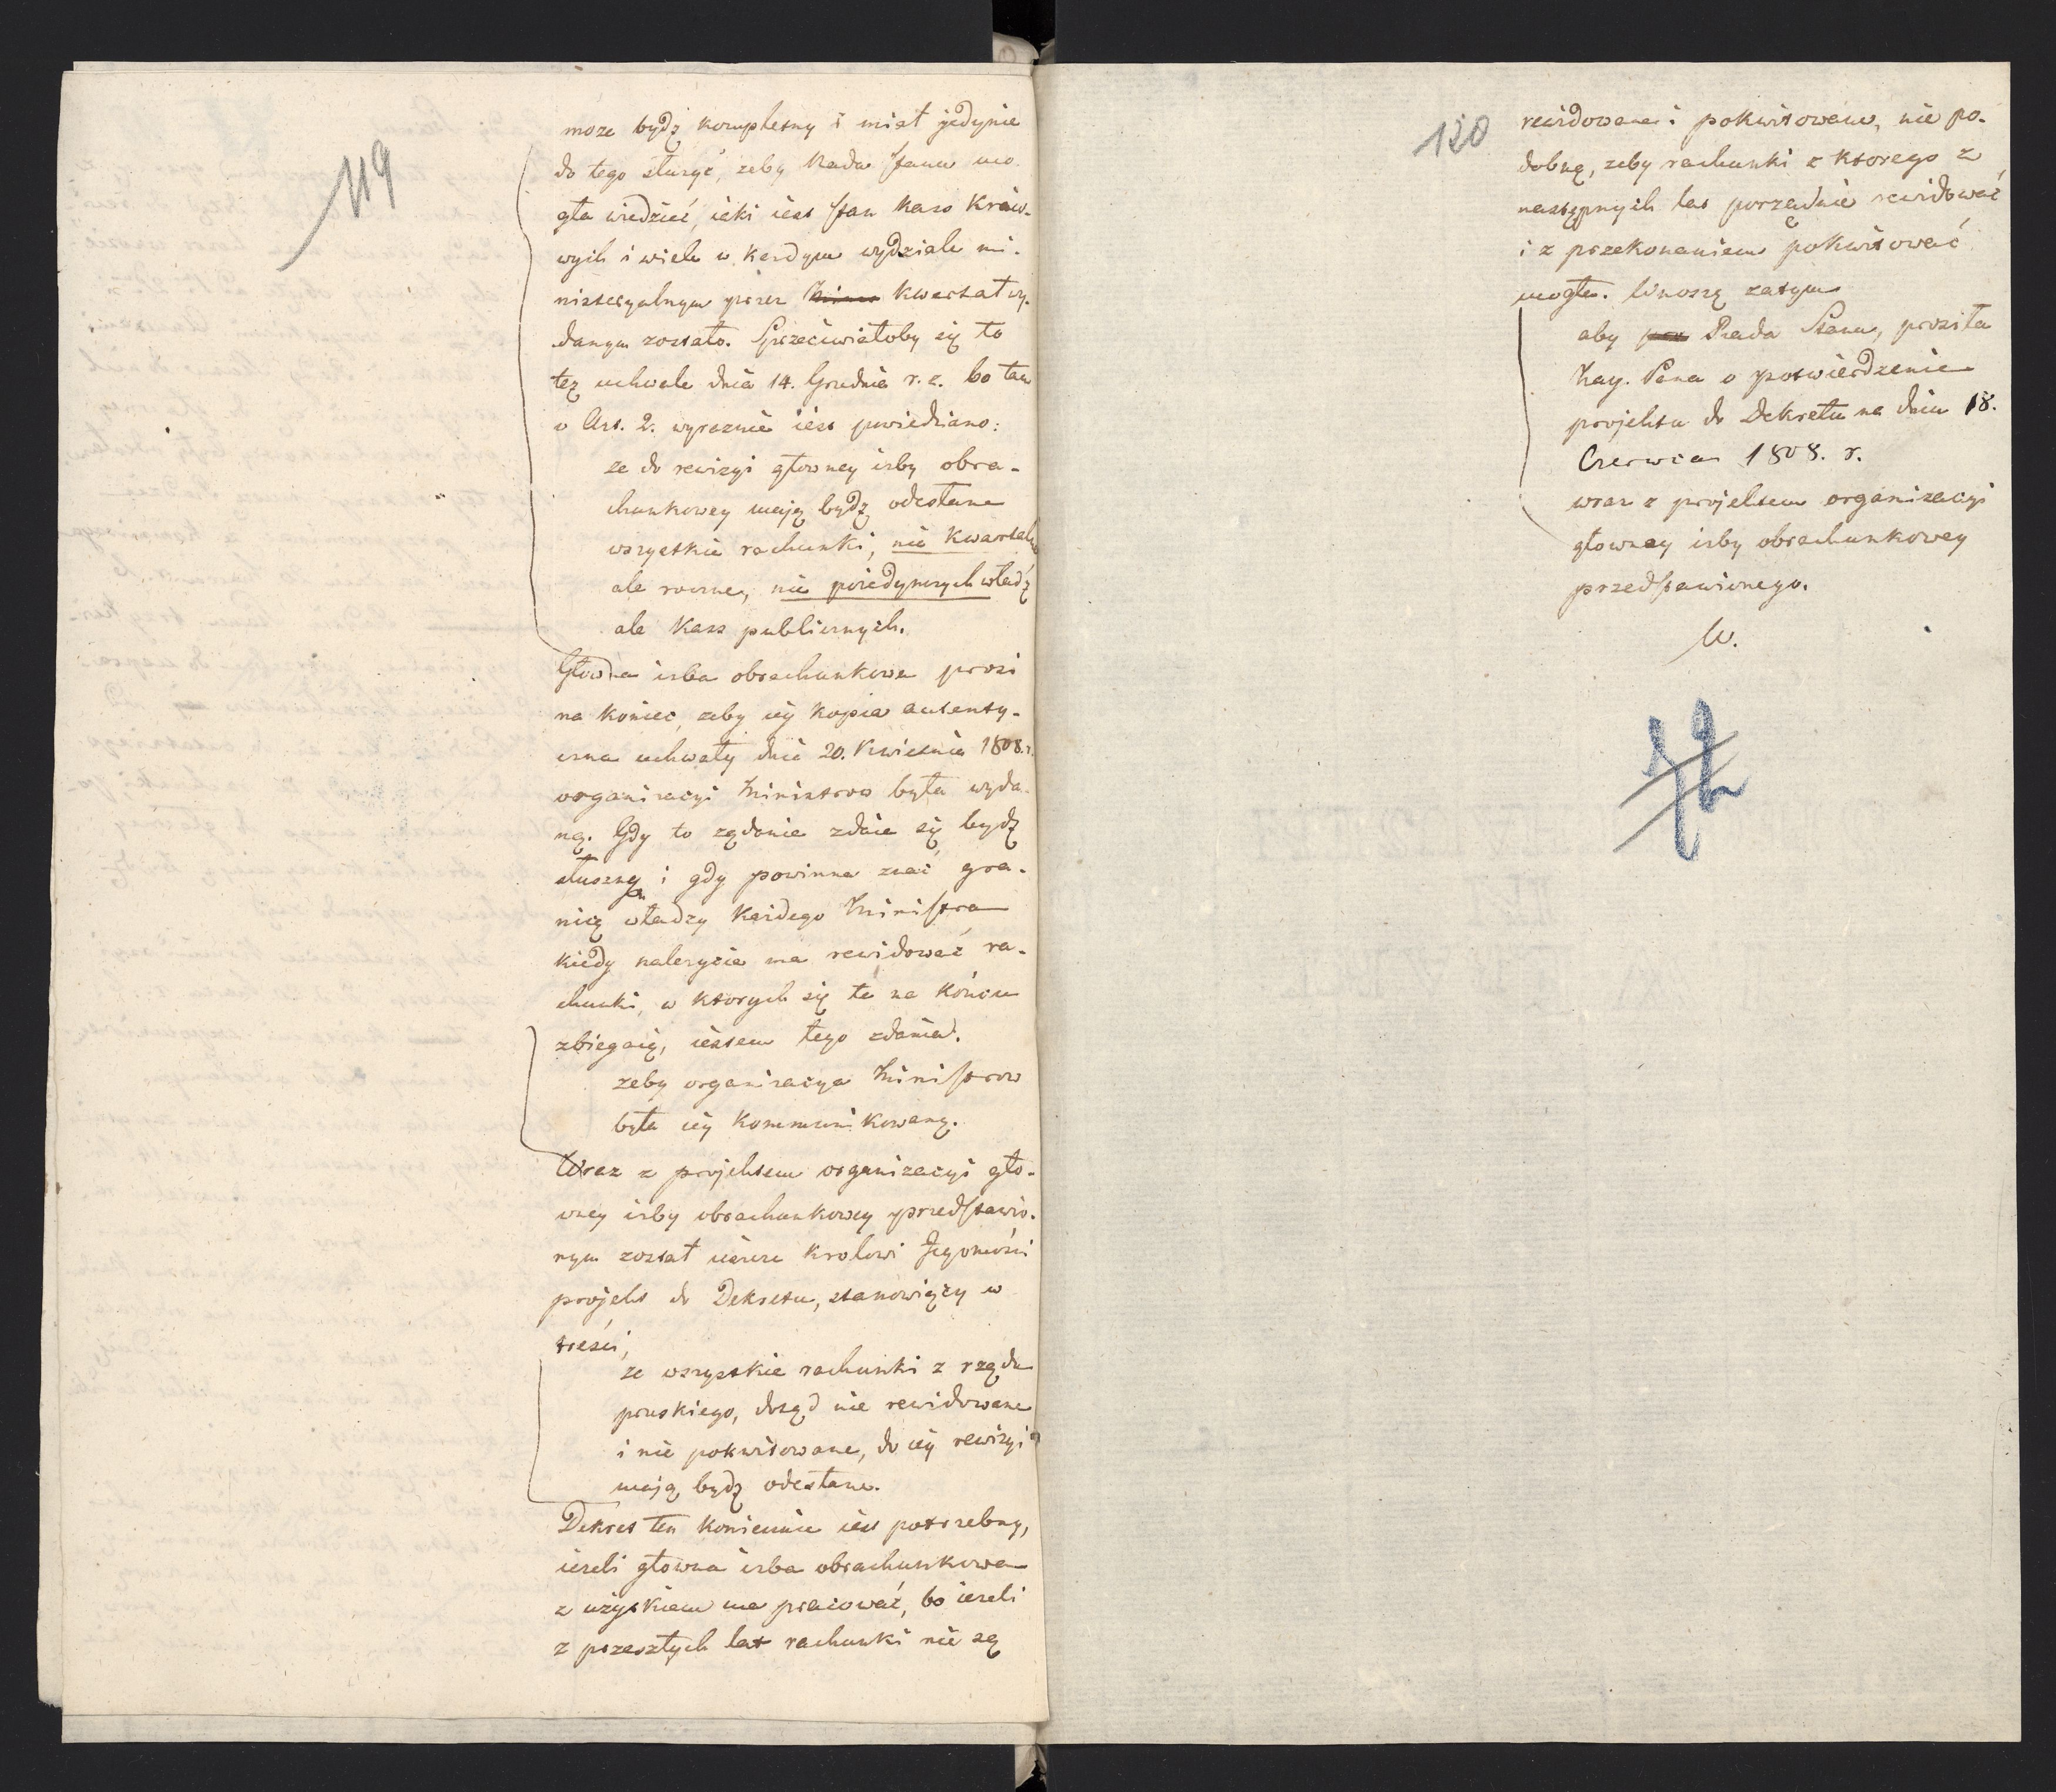 119
moze bydz komplesny i miat jedynie
do tego stuzyć, zeby Rada Stanu mo-
gta wiedzieć, iaki iest stan Kass Kraio-
wych i wiele w kazdym wydziale mi-
nisteryalnym przez kwartat wy-
danym zostato. Sprzeciwiatoby się to
tez uchwale dnia 14. Grudnia r. z. bo tam
w Art. 2. wyraznie iest powiedziano:
ze do rewizyi gtowney izby obra-
chunkowey maią bydz odestane
wszystkie rachunki, nie kwartalne
ale roczne, nie poiedynczych wtadz
ale Kass publicznych.
Gtowna izba obrachunkowa prosi
na koniec, zeby iey kopia autenty-
czna uchwaty dnia 20. Kwietnia 1808. r.
organizacyi Ministrow byta wyda-
ną. Gdy to ządanie zdaie się bydz
stuszną i gdy powinna znać gra-
nicę wtadzy kazdego Ministra
kiedy nalezycie ma rewidować ra-
chunki, w ktorych się te na końcu
zbiegaią, iestem tego zdania.
zeby organizacya Ministrow
byta iey kommunikowaną.
Wraz z projektem organizacyi gto-
wney izby obrachunkowey przedstawio-
nym zostat ieszcze Krolowi Jegomości
projekt do Dekretu, stanowiący w
treści,
ze wszystkie rachunki z rządu
pruskiego, dotąd nie rewidowane
i nie pokwitowane, do iey rewizyi
maią bydz odestane.
Dekret ten koniecznie iest potrzebny,
iezeli gtowna izba obrachunkowa
z uzyskiem ma pracować, bo iezeli
z przesztych lat rachunki nie są
120
rewidowane i pokwitowane, nie po-
dobną, zeby rachunki z ktorego z
następnych lat porządnie rewidować
i z przekonaniem pokwitować
mogta. Wnoszę zatym
aby Rada Stanu, prosita
Nay. Pana o potwierdzenie
projektu do Dekretu na dniu 18.
Czerwca 1808. r.
wraz z projektem organizacyi
gtowney izby obrachunkowey
przedstawionego.
W.